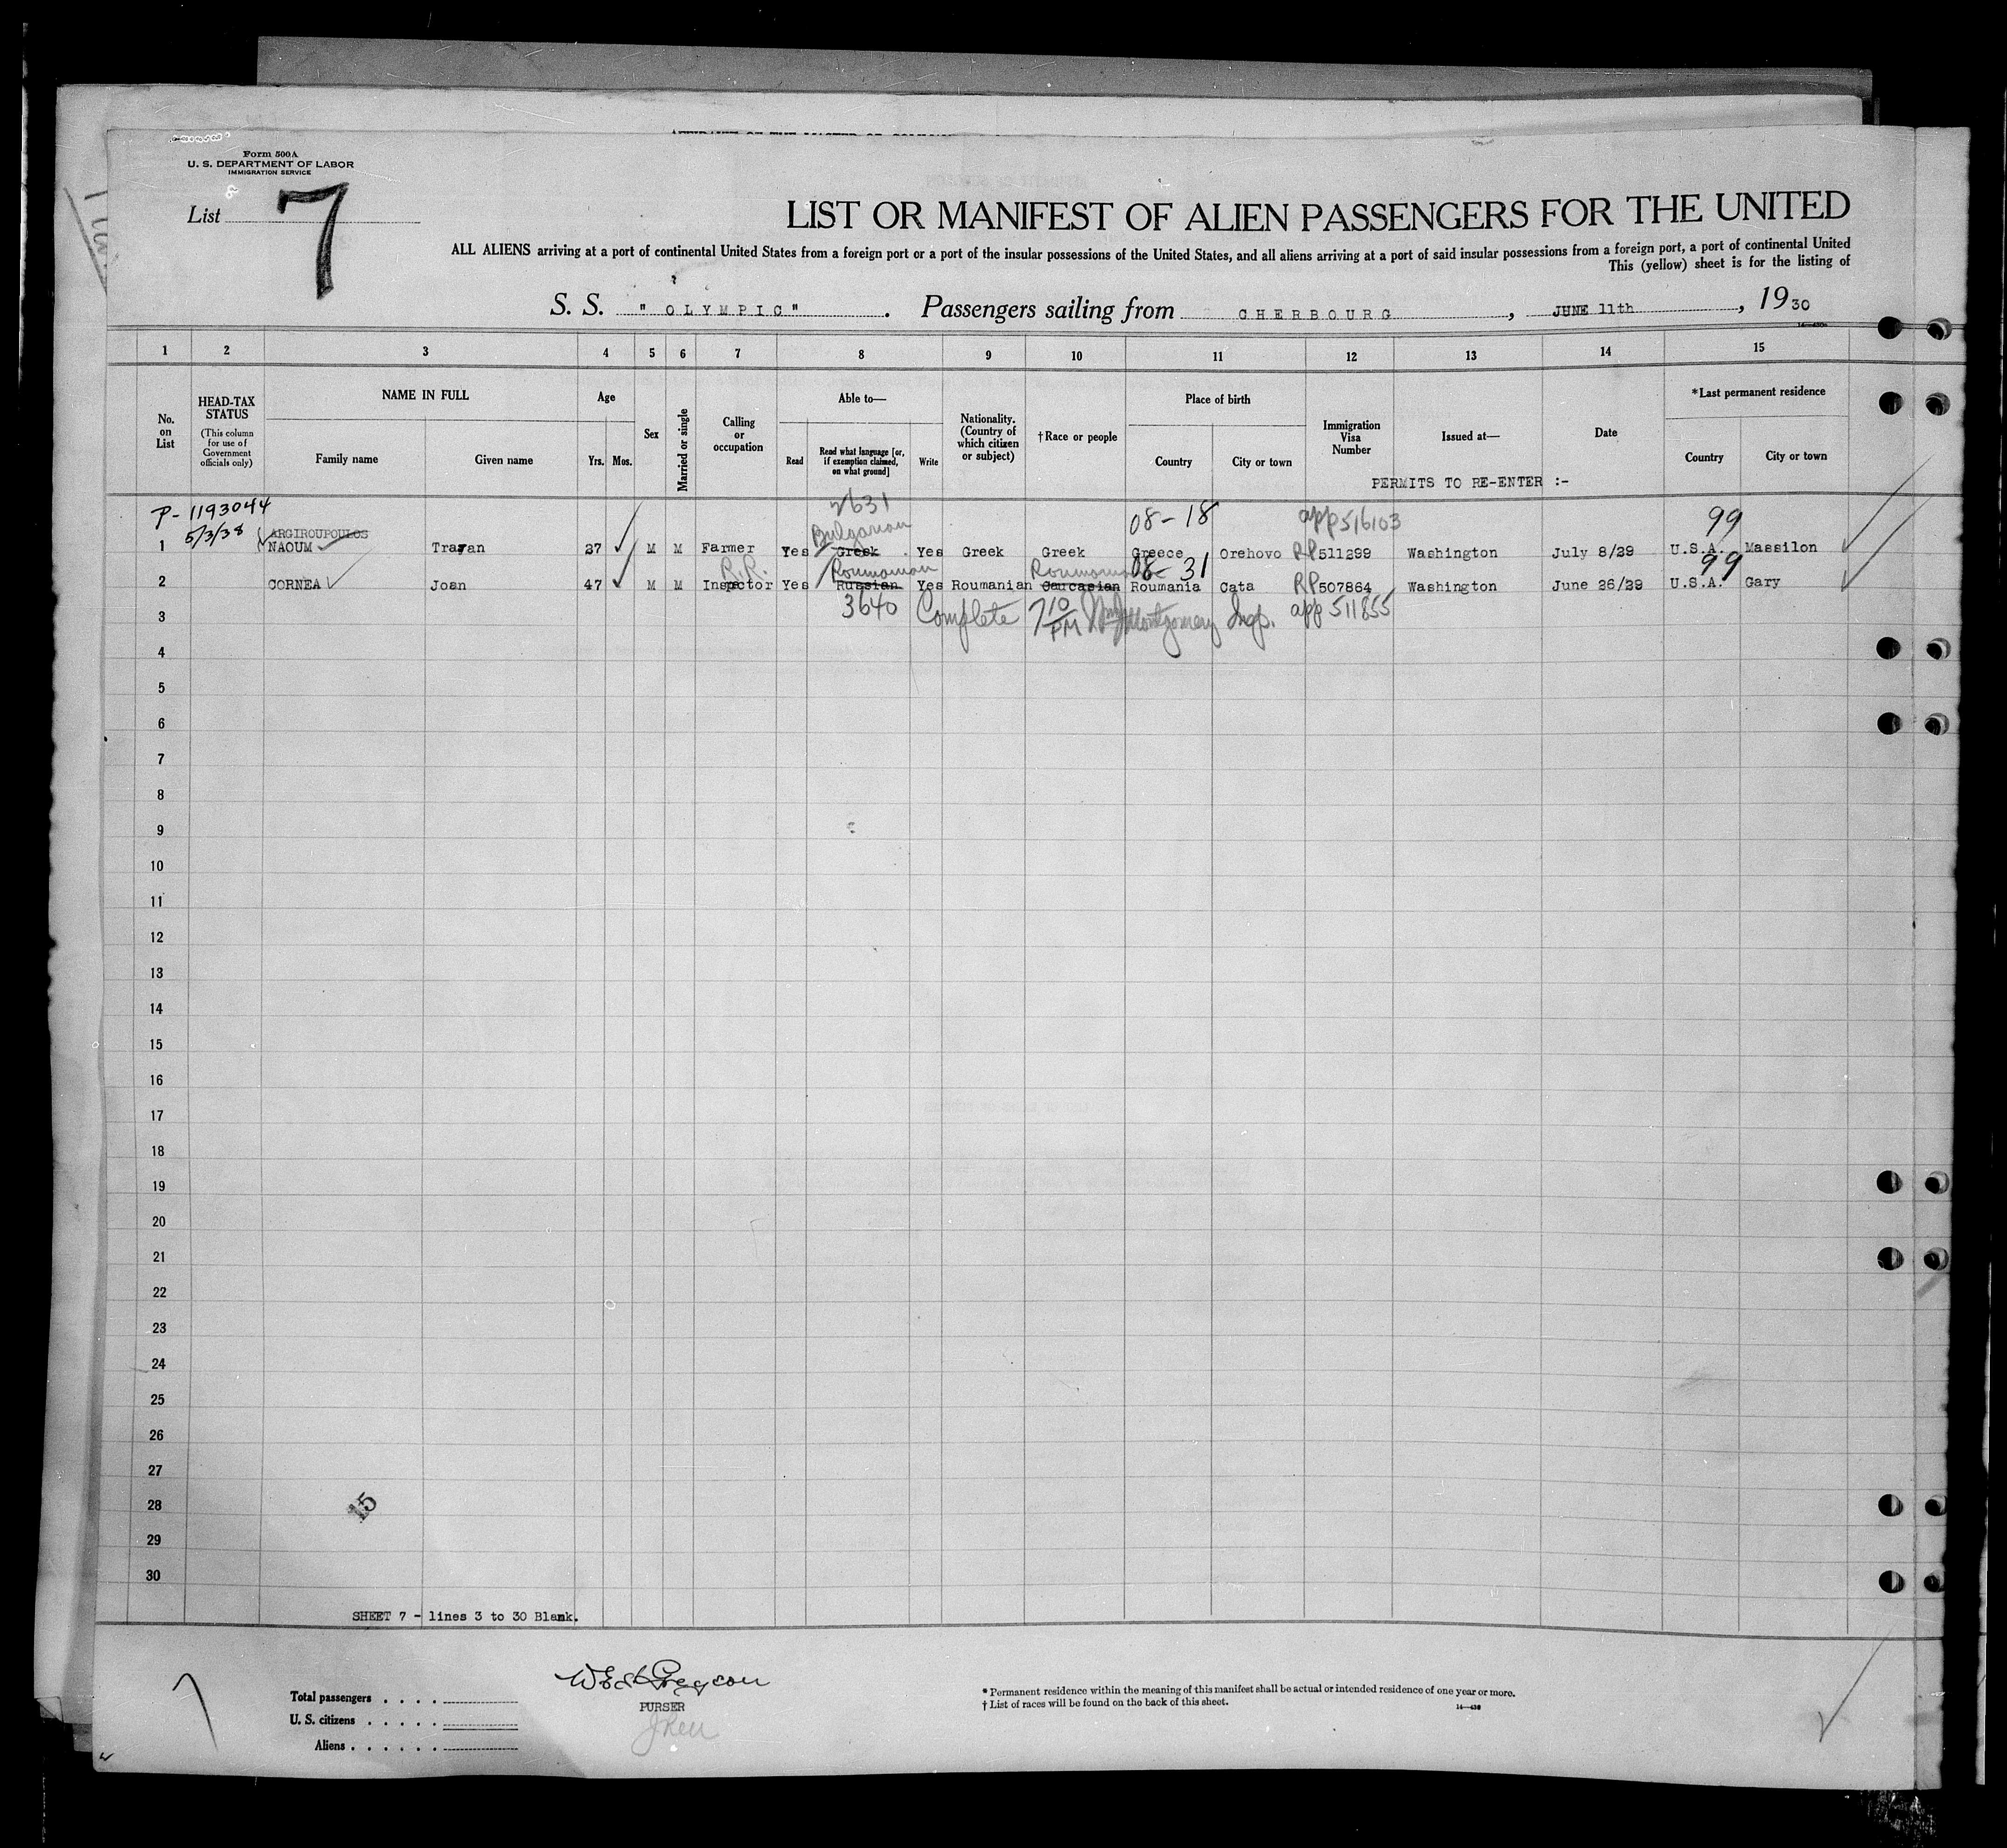 Form 500A
U. S. DEPARTMENT OF LABOR
IMMIGRATION SERVICE
List 7
LIST OR MANIFEST OF ALIEN PASSENGERS FOR THE UNITED
ALL ALIENS arriving at a port of continental United States from a foreign port or a port of the insular possessions of the United States, and all aliens arriving at a port of said insular possessions from a foreign port, a port of continental United
This (yellow) sheet is for the listing of
S. S. "OLYMPIC". Passengers sailing from CHERBOURG, JUNE 11th, 1930
1 2 3 4 5 6 7 8 9 10 11 12 13 14 15
No. on List
HEAD-TAX STATUS
(This column for use of Government officials only)
NAME IN FULL
Family name Given name
Age
Yrs. Mos.
Sex
Married or single
Calling or occupation
Able to—
Read Read what language [or, if exemption claimed, on what ground] Write
Nationality. (Country of which citizen or subject)
†Race or people
Place of birth
Country City or town
Immigration Visa Number
Issued at—
Date
*Last permanent residence
Country City or town
PERMITS TO RE-ENTER :-
P-1193044 2631 08-18 app 516103 99
5/3/38 ARGIROUPOULOS Bulgarian
1 NAOUM 37 M M Farmer Yes Greek Yes Greek Greek Greece Orehovo RP 511299 Washington July 8/29 U.S.A. Massilon
R.R. Roumanian Roumanian 08-31 99
2 CORNEA Joan 47 M M Inspector Yes Russian Yes Roumanian Caucasian Roumania Cata RP 507864 Washington June 26/29 U.S.A. Gary
3 3640 Complete 710 PM Montgomery Insp. app 511855
4
5
6
7
8
9
10
11
12
13
14
15
16
17
18
19
20
21
22
23
24
25
26
27
28
29
30
15
SHEET 7 - lines 3 to 30 Blank.
Total passengers . . . .
U. S. citizens . . . . .
Aliens . . . . . .
PURSER
* Permanent residence within the meaning of this manifest shall be actual or intended residence of one year or more.
† List of races will be found on the back of this sheet.